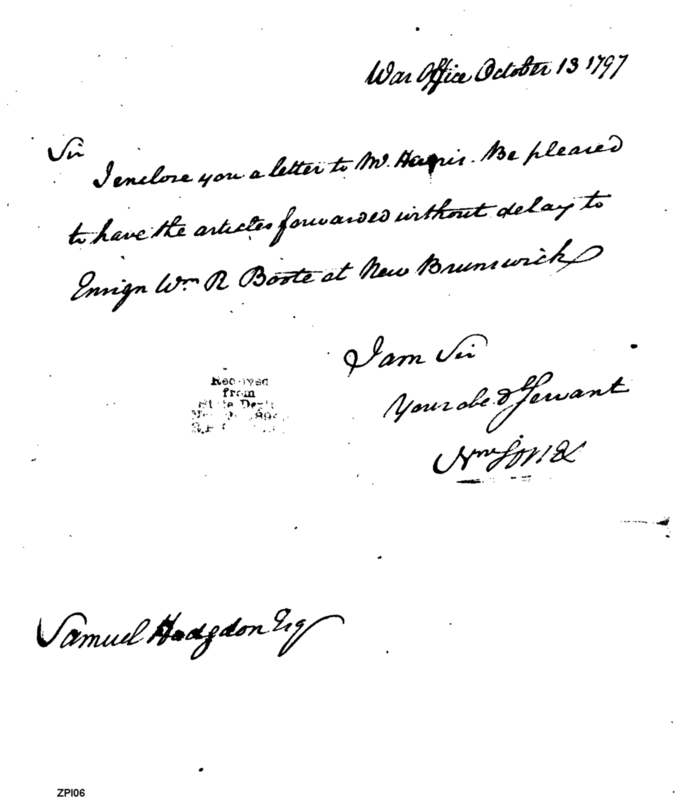 War Office October 13 1797
Sir
I enclose you a letter to Mr. Harris. Be pleased
to have the articles forwarded without delay to
Ensign Wm R Boote at New Brunswick
I am Sir
Your obe. dt Servant
Samuel Hodgdon Esq
Received
from
State Dept
ZPI06